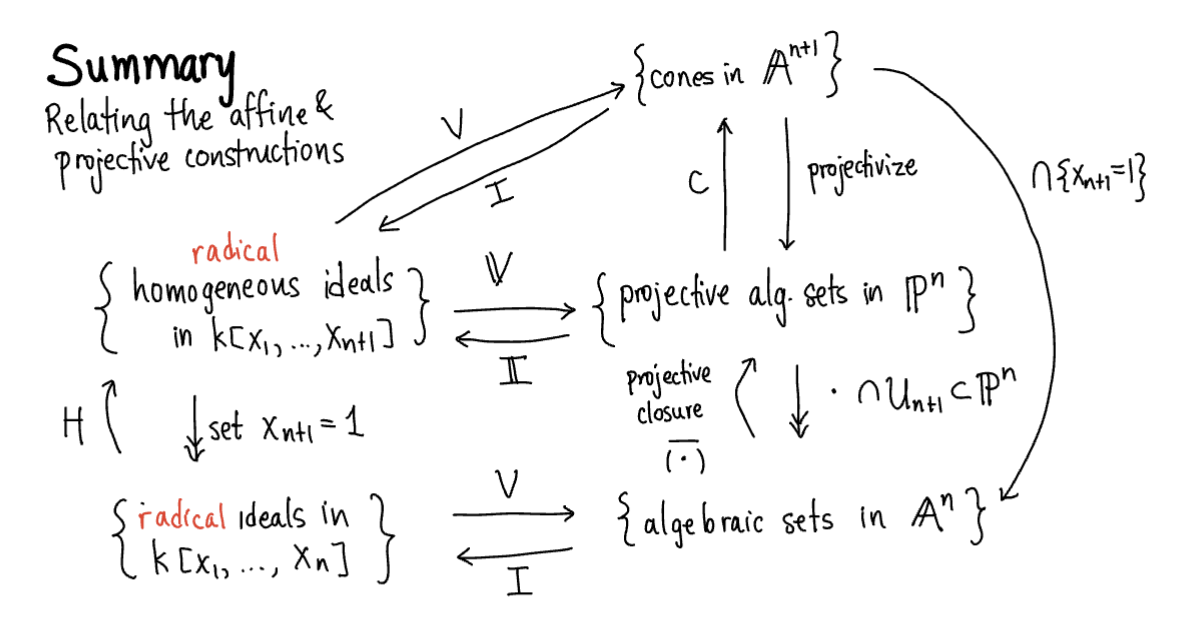 Summary
Relating the affine &
projective constructions
{cones in 𝔸ⁿ⁺¹}
V
I
C
projectivize
∩{xₙ₊₁=1}
radical
{homogeneous ideals
in k[x₁, ..., xₙ₊₁]}
𝕍
𝕀
{projective alg. sets in ℙⁿ}
H
set xₙ₊₁ = 1
projective
closure
(‾·‾)
· ∩ Uₙ₊₁ ⊂ ℙⁿ
{radical ideals in
k[x₁, ..., xₙ]}
V
I
{algebraic sets in 𝔸ⁿ}